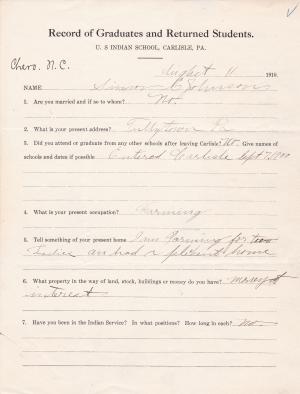 Record of Graduates and Returned Students.
U. S INDIAN SCHOOL, CARLISLE, PA.
Chero. N.C.
August 11 1910.
NAME Simon C Johnson
1. Are you married and if so to whom? No.
2. What is your present address? Tullytown Pa
3. Did you attend or graduate from any other schools after leaving Carlisle? No. Give names of
schools and dates if possible Entered Carlisle Sept 7, 1900
4. What is your present occupation? Farming
5. Tell something of your present home I am Farming for two
Ladies and had a pleasent home
6. What property in the way of land, stock, buildings or money do you have? Money at
interest
7. Have you been in the Indian Service? In what positions? How long in each? No.